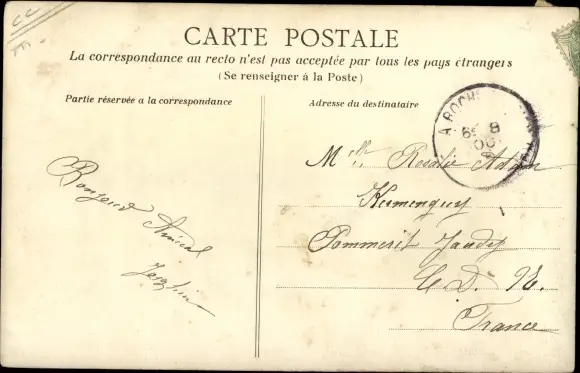 CARTE POSTALE
La correspondance au recto n'est pas acceptée par tous les pays étrangers
(Se renseigner à la Poste)
Partie réservée a la correspondance
Adresse du destinataire
A ROCHE
Mlle Rosalie Adam
Kermenguy
Pommerit Jaudy
C D. N.
France
Bonjour Amical